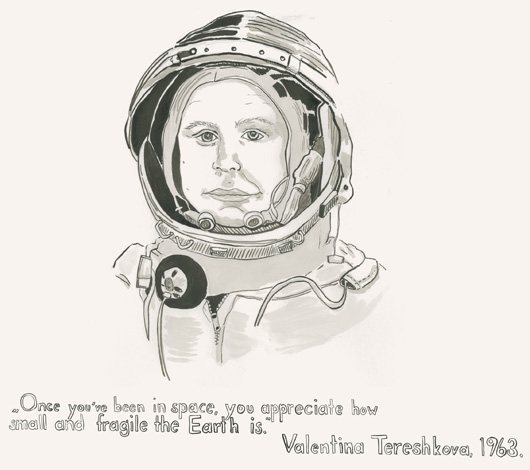 „Once you've been in space, you appreciate how
small and fragile the Earth is.“
Valentina Tereshkova, 1963.